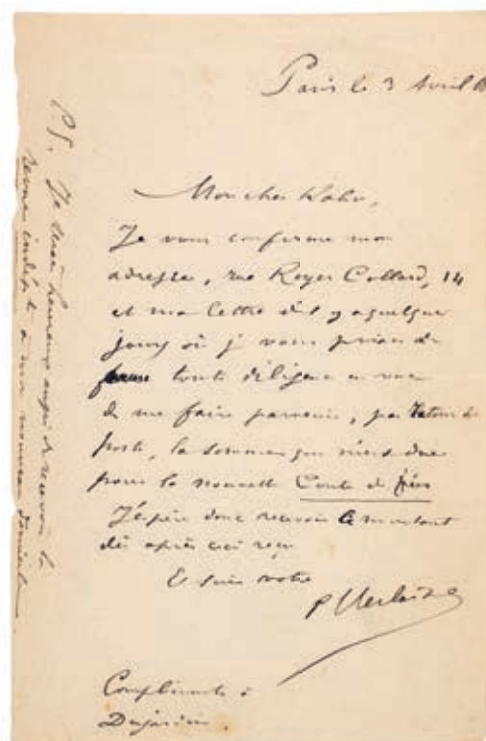 Paris le 3 Avril
Mon cher Kahn,
Je vous confirme mon
adresse, rue Royer Collard, 14
et ma lettre d'il y a quelques
jours où je vous priais de
toute diligence en vue
de me faire parvenir, par retour de
poste, la somme qui m'est due
pour la nouvelle Conte de fées
J'espère donc recevoir le montant
dès après ceci reçu
E suis votre
P Verlaine
Compliments à
Dujardin.
P.S. Je serai heureux aussi de recevoir la
revue indépte à mon nouveau domicile.